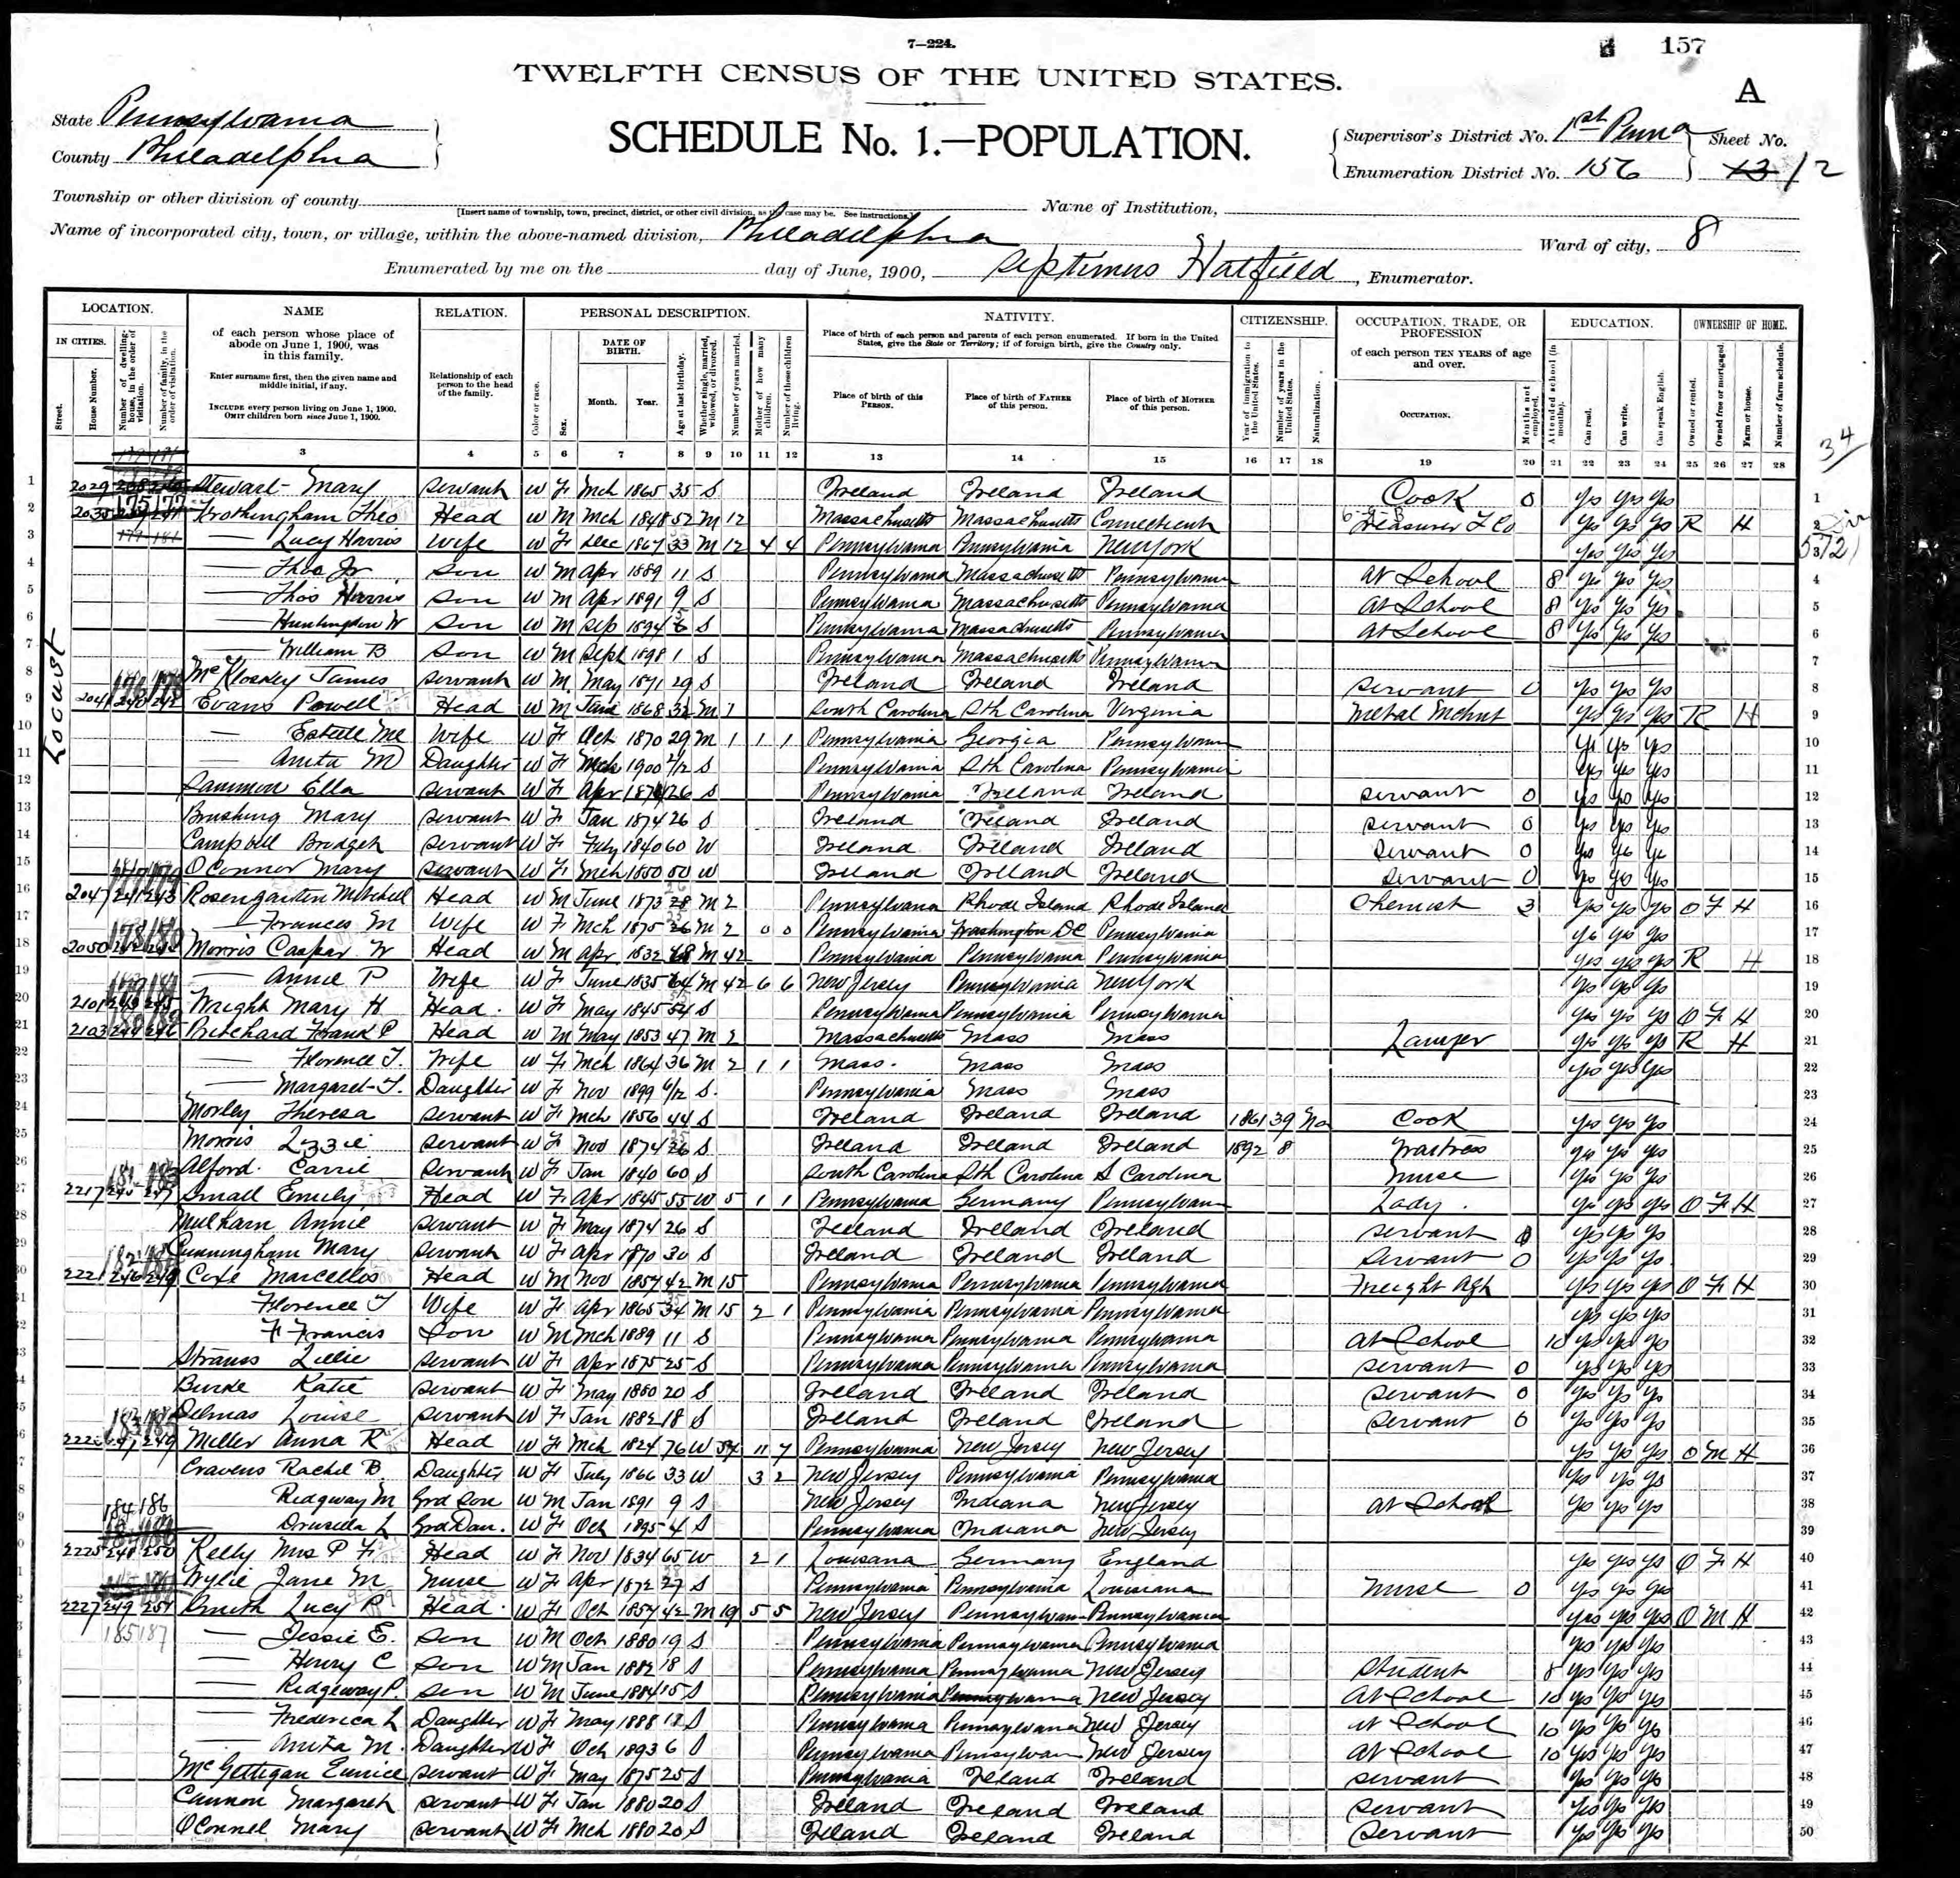 7—224.
157
TWELFTH CENSUS OF THE UNITED STATES.
A
State Pennsylvania
SCHEDULE No. 1.—POPULATION.
Supervisor's District No. 1st Penna Sheet No.
County Philadelphia
Enumeration District No. 156 12
Township or other division of county
[Insert name of township, town, precinct, district, or other civil division, as the case may be. See instructions.]
Name of Institution,
Name of incorporated city, town, or village, within the above-named division, Philadelphia Ward of city, 8
Enumerated by me on the day of June, 1900, Septimus Hatfield, Enumerator.
LOCATION. NAME RELATION. PERSONAL DESCRIPTION. NATIVITY. CITIZENSHIP. OCCUPATION, TRADE, OR PROFESSION EDUCATION. OWNERSHIP OF HOME.
IN CITIES. Street. House Number. Number of dwelling-house, in the order of visitation. Number of family, in the order of visitation.
of each person whose place of abode on June 1, 1900, was in this family.
Enter surname first, then the given name and middle initial, if any.
INCLUDE every person living on June 1, 1900. OMIT children born since June 1, 1900.
Relationship of each person to the head of the family.
Color or race. Sex. DATE OF BIRTH. Month. Year. Age at last birthday. Whether single, married, widowed, or divorced. Number of years married. Mother of how many children. Number of these children living.
Place of birth of each person and parents of each person enumerated. If born in the United States, give the State or Territory; if of foreign birth, give the Country only.
Place of birth of this PERSON. Place of birth of FATHER of this person. Place of birth of MOTHER of this person.
Year of immigration to the United States. Number of years in the United States. Naturalization.
of each person TEN YEARS of age and over.
OCCUPATION. Months not employed.
Attended school (in months). Can read. Can write. Can speak English.
Owned or rented. Owned free or mortgaged. Farm or house. Number of farm schedule.
3 4 5 6 7 8 9 10 11 12 13 14 15 16 17 18 19 20 21 22 23 24 25 26 27 28
34
Locust
1 2029 Stewart Mary Servant W F Mch 1865 35 S Ireland Ireland Ireland Cook 0 Yes Yes Yes 1
2 2035 Frothingham Theo Head W M Mch 1848 52 M 12 Massachusetts Massachusetts Connecticut Treasurer Yes Yes Yes R H 2
3 — Lucy Harris Wife W F Dec 1867 33 M 12 4 4 Pennsylvania Pennsylvania New York Yes Yes Yes 3
4 — Theo Jr Son W M Apr 1889 11 S Pennsylvania Massachusetts Pennsylvania At School 8 Yes Yes Yes 4
5 — Thos Harris Son W M Apr 1891 9 S Pennsylvania Massachusetts Pennsylvania At School 8 Yes Yes Yes 5
6 — Huntington W Son W M Sep 1894 S Pennsylvania Massachusetts Pennsylvania At School 8 Yes Yes Yes 6
7 — William B Son W M Sept 1898 1 S Pennsylvania Massachusetts Pennsylvania 7
8 James Servant W M May 1871 29 S Ireland Ireland Ireland Servant 0 Yes Yes Yes 8
9 2041 240 242 Evans Powell Head W M June 1868 32 M 1 South Carolina Sth Carolina Virginia Metal Mchnt Yes Yes Yes R H 9
10 — Estelle Mc Wife W F Oct 1870 29 M 1 1 1 Pennsylvania Georgia Pennsylvania Yes Yes Yes 10
11 — Anita M Daughter W F Mch 1900 2/12 S Pennsylvania Sth Carolina Pennsylvania Yes Yes Yes 11
12 Sammon Ella Servant W F Apr 1874 26 S Pennsylvania Ireland Ireland Servant 0 Yes Yes Yes 12
13 Brushing Mary Servant W F Jan 1874 26 S Ireland Ireland Ireland Servant 0 Yes Yes Yes 13
14 Campbell Bridget Servant W F July 1840 60 W Ireland Ireland Ireland Servant 0 Yes Yes Yes 14
15 O'Connor Mary Servant W F Mch 1850 50 W Ireland Ireland Ireland Servant 0 Yes Yes Yes 15
16 2047 241 243 Rosengarten Mitchell Head W M June 1873 M 2 Pennsylvania Rhode Island Rhode Island Chemist 3 Yes Yes Yes O F H 16
17 — Frances M Wife W F Mch 1875 M 2 0 0 Pennsylvania Washington DC Pennsylvania Yes Yes Yes 17
18 2050 Morris Caspar W Head W M Apr 1832 68 M 42 Pennsylvania Pennsylvania Pennsylvania Yes Yes Yes R H 18
19 — Annie P Wife W F June 1835 64 M 42 6 6 New Jersey Pennsylvania New York Yes Yes Yes 19
20 2101 Wright Mary H Head W F May 1845 S Pennsylvania Pennsylvania Pennsylvania Yes Yes Yes O F H 20
21 2103 Pritchard Frank P Head W M May 1853 47 M 2 Massachusetts Mass Mass Lawyer Yes Yes Yes R H 21
22 — Florence T. Wife W F Mch 1864 36 M 2 1 1 Mass. Mass Mass Yes Yes Yes 22
23 — Margaret T. Daughter W F Nov 1899 6/12 S. Pennsylvania Mass Mass 23
24 Morley Theresa Servant W F Mch 1856 44 S Ireland Ireland Ireland 1861 39 No Cook Yes Yes Yes 24
25 Morris Lizzie Servant W F Nov 1874 S Ireland Ireland Ireland 1892 8 Waitress Yes Yes Yes 25
26 Alford Carrie Servant W F Jan 1840 60 S South Carolina Sth Carolina S Carolina Nurse Yes Yes Yes 26
27 2217 245 247 Small Emily Head W F Apr 1845 55 W 5 1 1 Pennsylvania Germany Pennsylvania Lady Yes Yes Yes O F H 27
28 Mulharn Annie Servant W F May 1874 26 S Ireland Ireland Ireland Servant 0 Yes Yes Yes 28
29 Cunningham Mary Servant W F Apr 1870 30 S Ireland Ireland Ireland Servant 0 Yes Yes Yes 29
30 2221 246 Coxe Marcellus Head W M Nov 1857 42 M 15 Pennsylvania Pennsylvania Pennsylvania Freight Agt Yes Yes Yes O F H 30
31 Florence T Wife W F Apr 1865 34 M 15 2 1 Pennsylvania Pennsylvania Pennsylvania Yes Yes Yes 31
32 F Francis Son W M Mch 1889 11 S Pennsylvania Pennsylvania Pennsylvania At School 10 Yes Yes Yes 32
33 Strauss Lillie Servant W F Apr 1875 25 S Pennsylvania Pennsylvania Pennsylvania Servant 0 Yes Yes Yes 33
34 Burke Katie Servant W F May 1880 20 S Ireland Ireland Ireland Servant 0 Yes Yes Yes 34
35 Delmas Louise Servant W F Jan 1882 18 S Ireland Ireland Ireland Servant 0 Yes Yes Yes 35
36 Miller Anna R Head W F Mch 1824 76 W 54 11 7 Pennsylvania New Jersey New Jersey Yes Yes Yes O M H 36
37 Cravens Rachel B. Daughter W F July 1866 33 W 3 2 New Jersey Pennsylvania Pennsylvania Yes Yes Yes 37
38 Ridgway M Grd Son W M Jan 1891 9 S New Jersey Indiana New Jersey At School Yes Yes Yes 38
39 184 186 Drusilla L Grd Dau. W F Oct 1895 4 S Pennsylvania Indiana New Jersey 39
40 2225 248 250 Kelly Mrs P F Head W F Nov 1834 65 W 2 1 Louisiana Germany England Yes Yes Yes O F H 40
41 Wylie Jane M Nurse W F Apr 1872 27 S Pennsylvania Pennsylvania Louisiana Nurse 0 Yes Yes Yes 41
42 2227 249 251 Smith Lucy P. Head W F Oct 1857 42 M 19 5 5 New Jersey Pennsylvania Pennsylvania Yes Yes Yes O M H 42
43 185 187 — Jessie E. Son W M Oct 1880 19 S Pennsylvania Pennsylvania Pennsylvania Yes Yes Yes 43
44 — Henry C Son W M Jan 1882 18 S Pennsylvania Pennsylvania New Jersey Student 8 Yes Yes Yes 44
45 — Ridgeway P. Son W M June 1884 15 S Pennsylvania Pennsylvania New Jersey At School 10 Yes Yes Yes 45
46 — Frederica L Daughter W F May 1888 12 S Pennsylvania Pennsylvania New Jersey At School 10 Yes Yes Yes 46
47 — Anita M. Daughter W F Oct 1893 6 S Pennsylvania Pennsylvania New Jersey At School 10 Yes Yes Yes 47
48 McGettigan Eunice Servant W F May 1875 25 S Pennsylvania Ireland Ireland Servant Yes Yes Yes 48
49 Cannon Margaret Servant W F Jan 1880 20 S Ireland Ireland Ireland Servant Yes Yes Yes 49
50 O'Connel Mary Servant W F Mch 1880 20 S Ireland Ireland Ireland Servant Yes Yes Yes 50